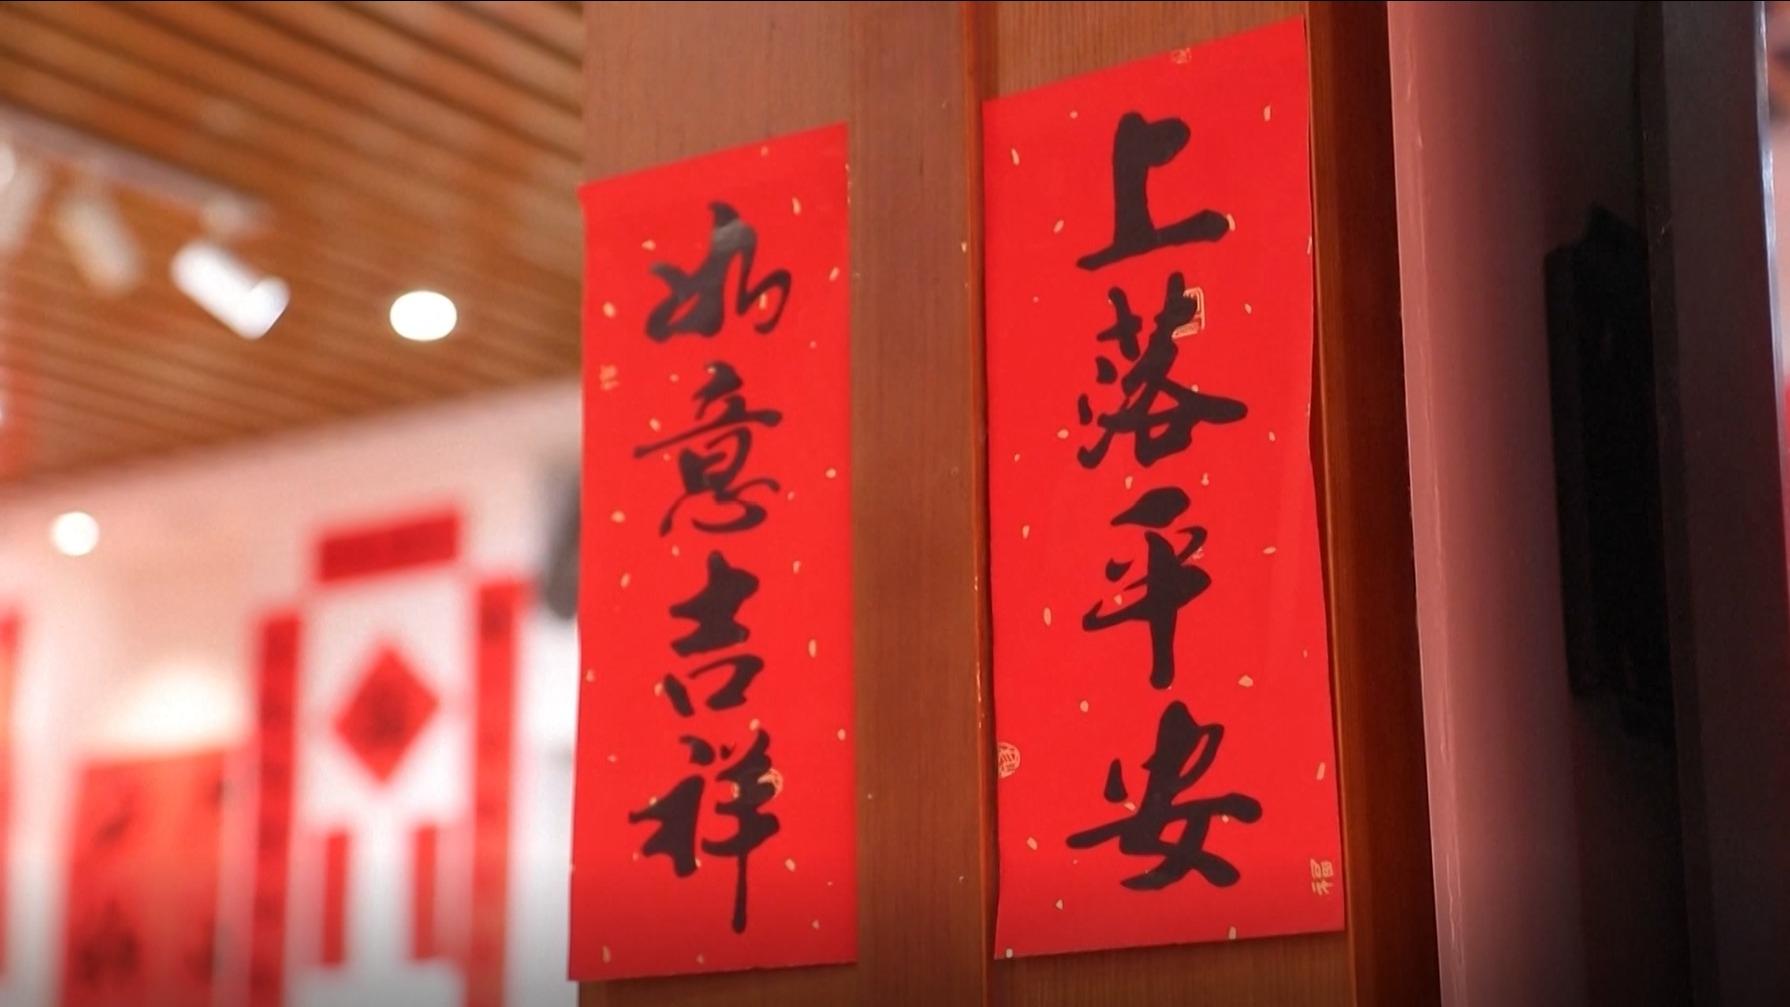 上落平安
如意吉祥